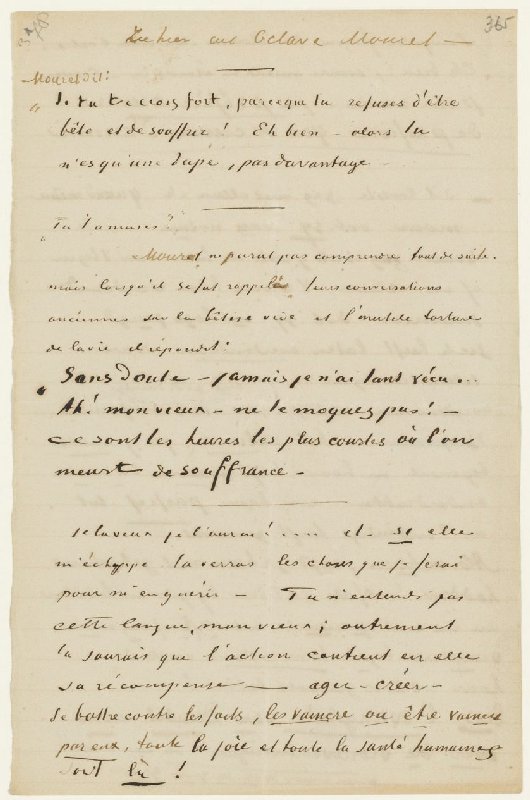 365
Zie hier out Octave Mouret —
Mouret dit:
„ Si tu te crois fort, parceque tu refuses d'être
bête et de souffrir! Eh bien – alors tu
n'es qu'une dupe, pas davantage
„ Tu t'amuses?"
Mouret ne parut pas comprendre tout de suite.
mais lorsqu'il se fut rappelé leurs conversations
anciennes sur la bêtise vide et l'inutile torture
de la vie il répondit:
„ Sans Doute – jamais je n'ai tant vécu...
Ah! mon vieux – ne te moques pas! –
ce sont les heures les plus courtes où l'on
meurt de souffrance –
je la veux je l'aurai! .... et si elle
m'échappe tu verras les choses que je ferai
pour m'en guérir – Tu n'entends pas
cette langue, mon vieux; autrement
tu saurais que l'action contient en elle
sa récompense — agir – créer –
se battre contre les faits, les vaincre ou être vaincu
par eux, toute la joie et toute la santé humaines
sont là !